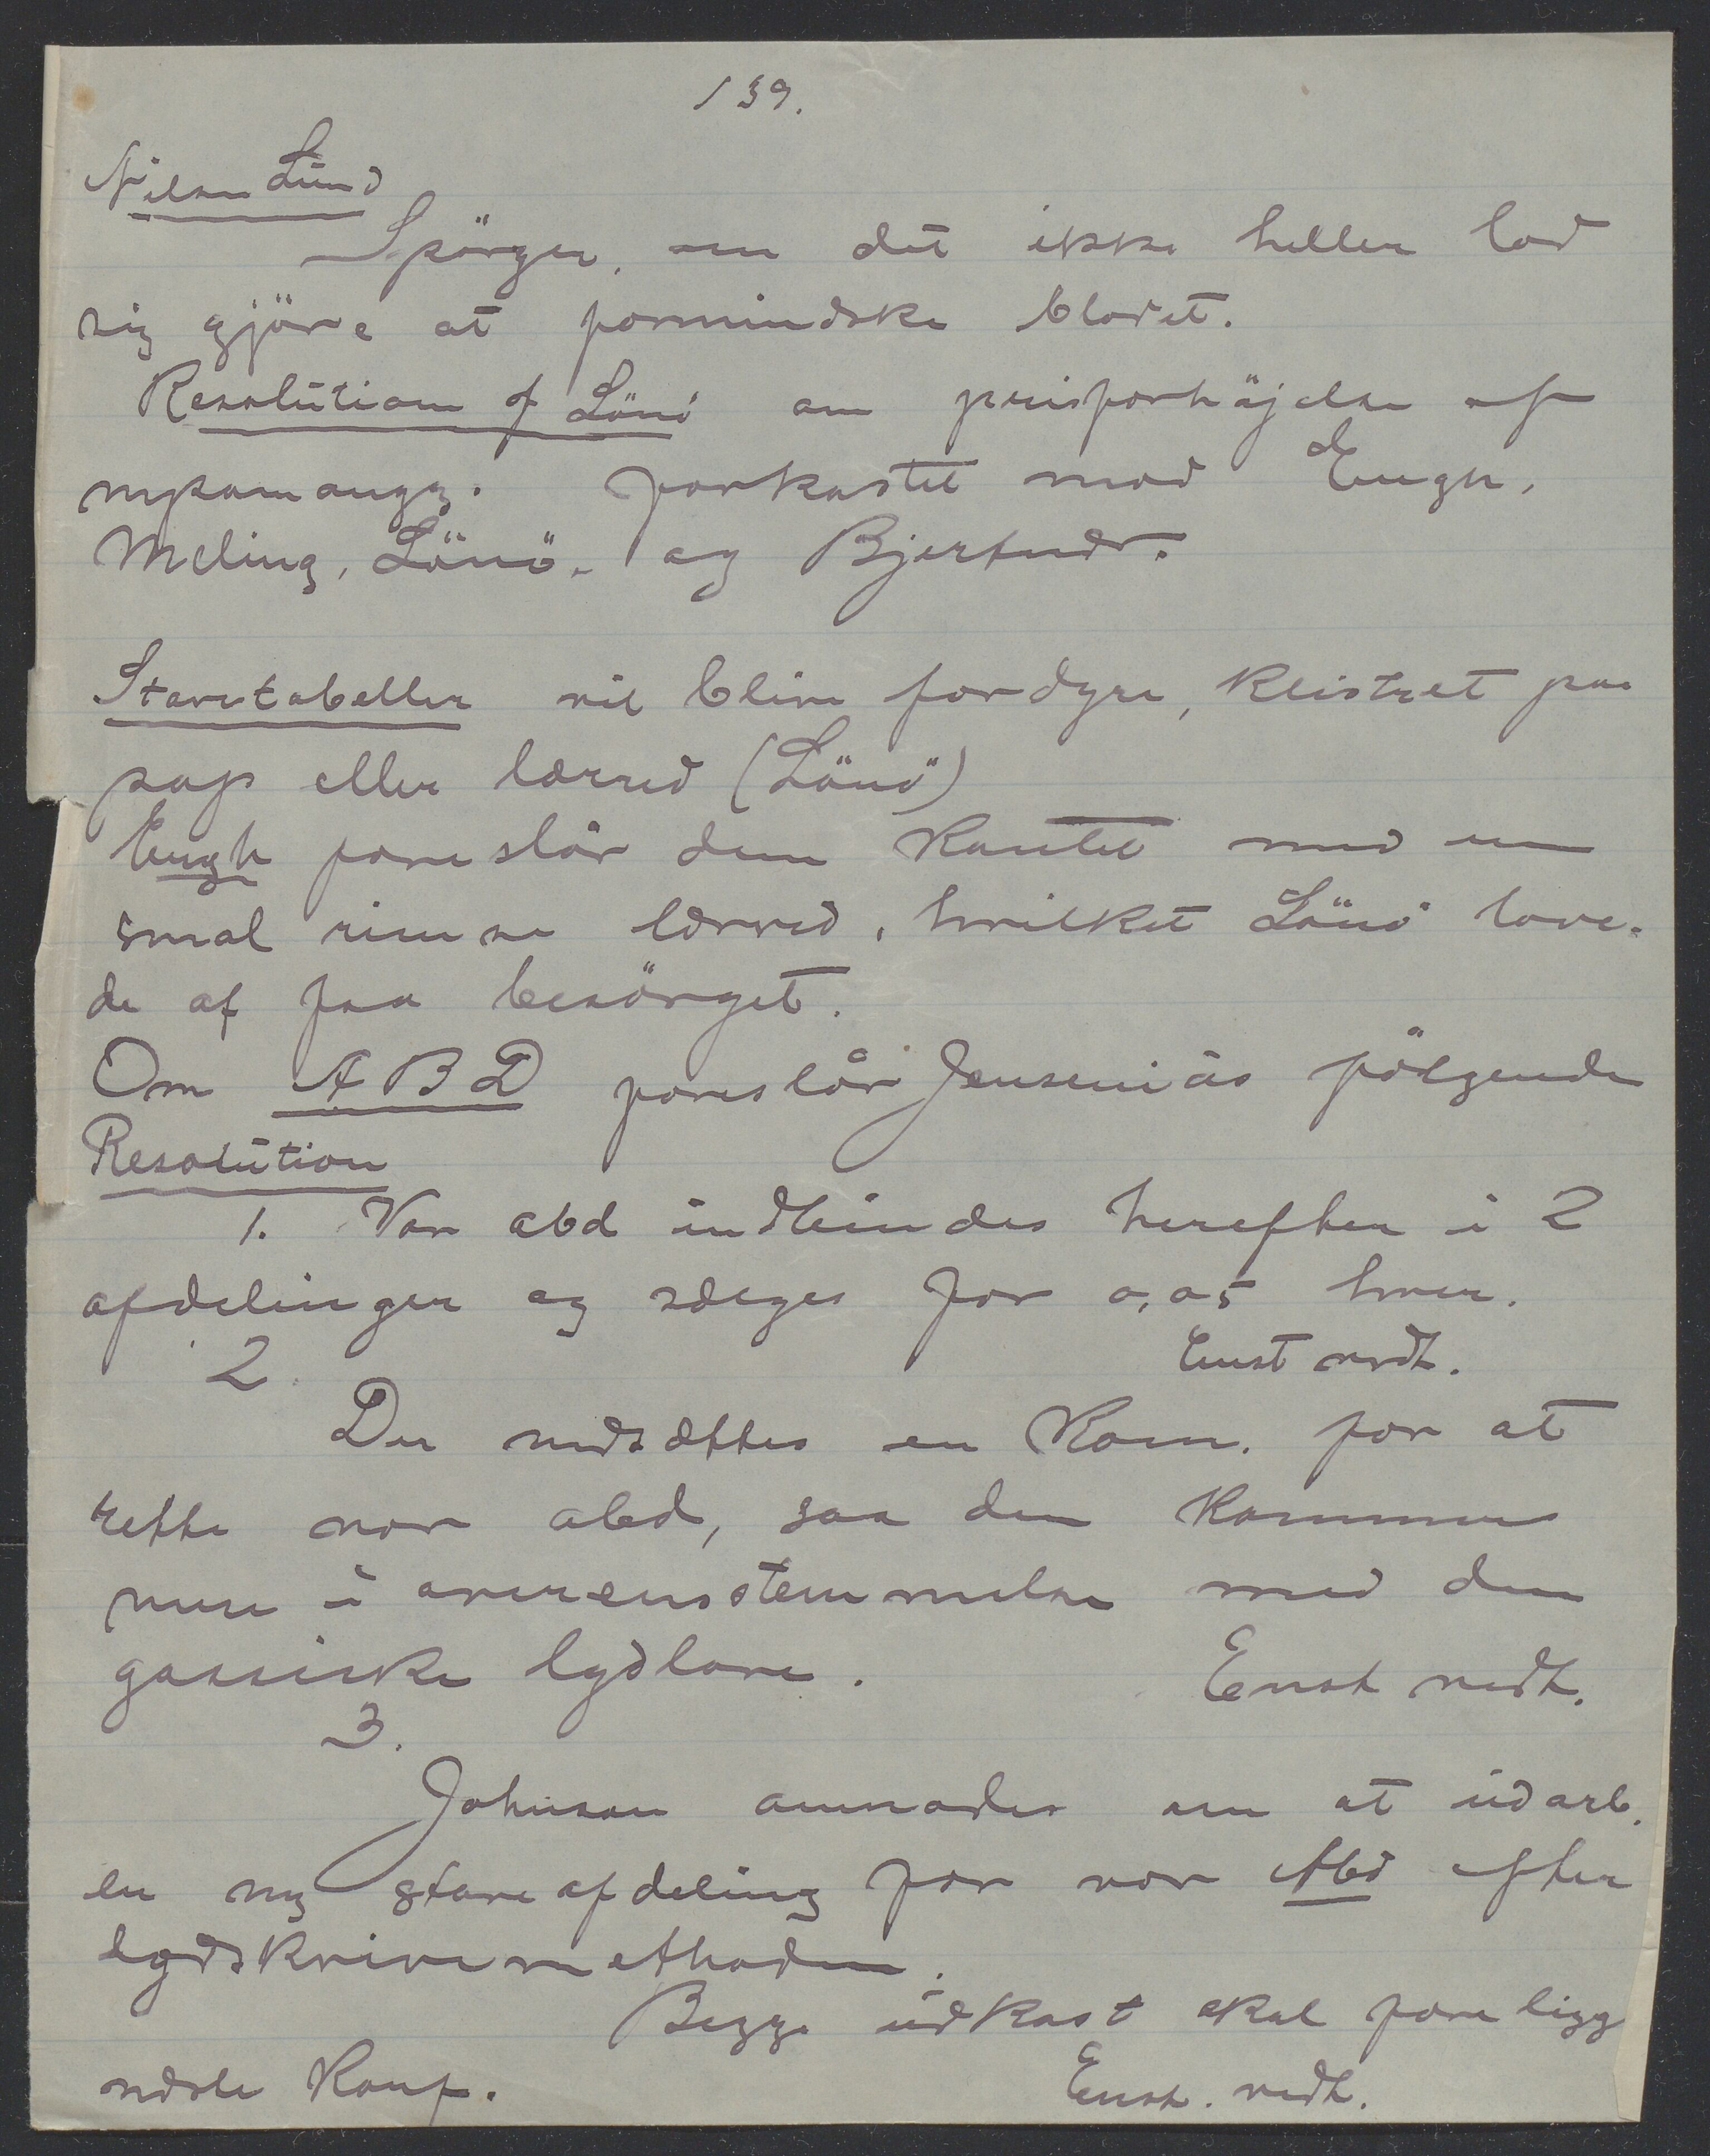 139.
Nilsen Lund
Spörger, om det ikke heller lod
sig gjöre at formindske bladet.
Resolution af Lönö om prisforhöjelse af
mpamangg. forkastet mod Engh,
Meling, Lönö. og Bjertnæs.
Stavetabeller vil blive for dyre, klistret paa
pap eller lærred (Lönö)
Engh foreslår dem kantet med en
smal rimse lærred, hvilket Lönö love-
de af faa besörget.
Om ABD foreslår Jensenius fölgende
Resolution
1. Vor abd indbindes herefter i 2
afdelinger og sælges for 0,05 hver.
2. Enst vedt.
Der nedsættes en Kom. for at
rette vor abd, saa den kommer
mere i overensstemmelse med den
gassiske lydlære. Enst vedt.
3.
Johnson anmodes om at udarb.
en ny staveafdeling for vor Abd efter
lydskrivemethoden.
Begge udkast skal forelígg
næste Konf. Enst. vedt.